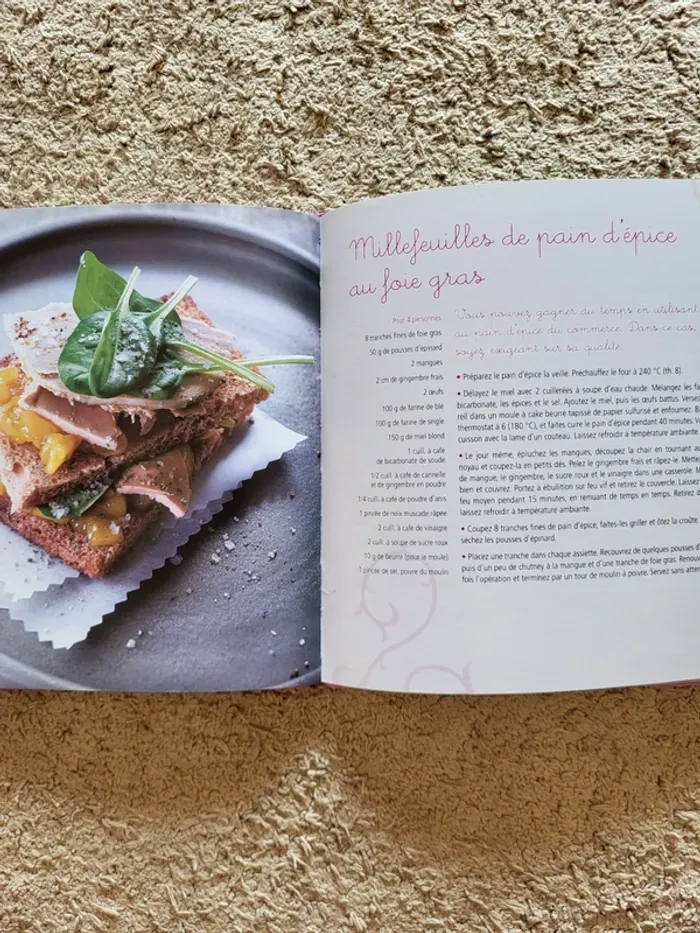 Millefeuilles de pain d'épice
au foie gras
Pour 4 personnes
8 tranches fines de foie gras
50 g de pousses d'épinard
2 mangues
2 cm de gingembre frais
2 œufs
100 g de farine de blé
100 g de farine de seigle
150 g de miel blond
1 cuill. à café
de bicarbonate de soude
1/2 cuill. à café de cannelle
et de gingembre en poudre
1/4 cuill. à café de poudre d'anis
1 pincée de noix muscade râpée
2 cuill. à café de vinaigre
2 cuill. à soupe de sucre roux
10 g de beurre (pour le moule)
1 pincée de sel, poivre du moulin
Vous pouvez gagner du temps en utilisant
du pain d'épice du commerce. Dans ce cas,
soyez exigeant sur sa qualité.
• Préparez le pain d'épice la veille. Préchauffez le four à 240 °C (th. 8).
• Délayez le miel avec 2 cuillerées à soupe d'eau chaude. Mélangez les
bicarbonate, les épices et le sel. Ajoutez le miel, puis les œufs battus. Versez
reil dans un moule à cake beurré tapissé de papier sulfurisé et enfournez.
thermostat à 6 (180 °C), et faites cuire le pain d'épice pendant 40 minutes.
cuisson avec la lame d'un couteau. Laissez refroidir à température ambiante.
• Le jour même, épluchez les mangues, découpez la chair en tournant
noyau et coupez-la en petits dés. Pelez le gingembre frais et râpez-le.
de mangue, le gingembre, le sucre roux et le vinaigre dans une casserole.
bien et couvrez. Portez à ébullition sur feu vif et retirez le couvercle. Laissez
feu moyen pendant 15 minutes, en remuant de temps en temps. Retirez
laissez refroidir à température ambiante.
• Coupez 8 tranches fines de pain d'épice, faites-les griller et ôtez la croûte
séchez les pousses d'épinard.
• Placez une tranche dans chaque assiette. Recouvrez de quelques pousses
puis d'un peu de chutney à la mangue et d'une tranche de foie gras.
fois l'opération et terminez par un tour de moulin à poivre. Servez sans